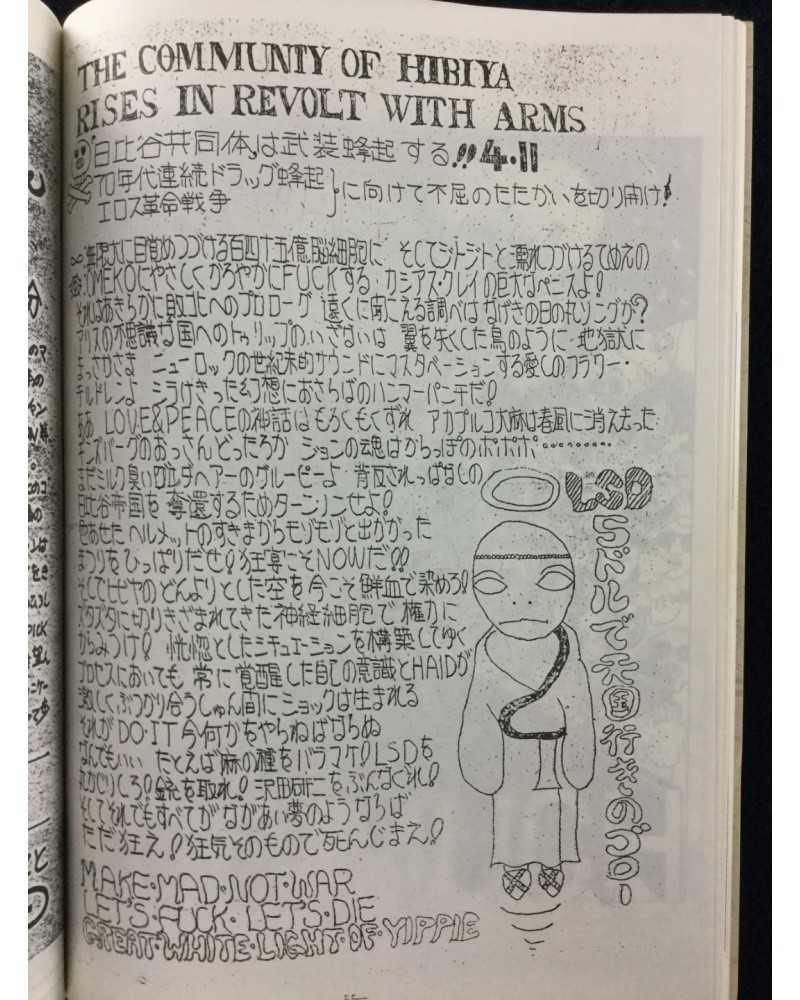 THE COMMUNTY OF HIBIYA
RISES IN REVOLT WITH ARMS
日比谷共同体は武装蜂起する!! 4・11
70年代連続ドラッグ蜂起
エロス革命戦争
に向けて不屈のたたかいを切り開け!
無限大に目覚めつづける百四十五億脳細胞に そしてジトジトと濡れつづけるてめえの
OMEKOにやさしくかろやかにFUCKする・カシアス・クレイの巨大なペニスよ!
それはあきらかに敗北へのプロローグ 遠くに聞こえる調べはなげきの日の丸ソングか?
アリスの不思議な国へのトゥリップのいざないは 翼を失くした鳥のように・地獄に
まっさかさま ニューロックの世紀末的サウンドにマスタベーションする愛しのフラワー・
チルドレンよ シラけきった幻想におさらばのハンマーパンチだ!
ああ LOVE&PEACEの神話はもろくもくずれ アカプルコ大麻は春風に消え去った
ギンズバーグのおっさんどったろか ジョンの魂はからっぽのポポポ………
まだミルク臭い ヘアーのグルーピーよ 背反されっぱなしの
日比谷帝国を 奪還するためターンノンせよ!
色あせた ヘルメットのすきまからモゾモゾと出かかった
まつりをひっぱりだせ!狂宴こそNOWだ!!
そしてヒビヤのどんよりとした空を今こそ鮮血で染めろ!
ズタズタに切りきざまれてきた神経細胞で 権力に
からみつけ! 恍惚としたシチュエーションを構築してゆく
プロセスにおいても 常に覚醒した自己の意識とHAIDが
激しくぶつかり合うしゅん間にショックは生まれる
それがDO・IT今何かをやらねばならぬ
なんでもいい たとえば麻の種をバラマケ!LSDを
丸かじりしろ!銃を取れ! 沢田研二をぶんなぐれ!
そしてそれでもすべてがながあい夢のようならば
ただ狂え!狂気そのもので死んじまえ!
MAKE・MAD・NOT・WAR
LET'S・FUCK・LET'S・DIE
GREAT・WHITE・LIGHT・OF・YIPPIE
LSD
5ドルで天国行きのゴー